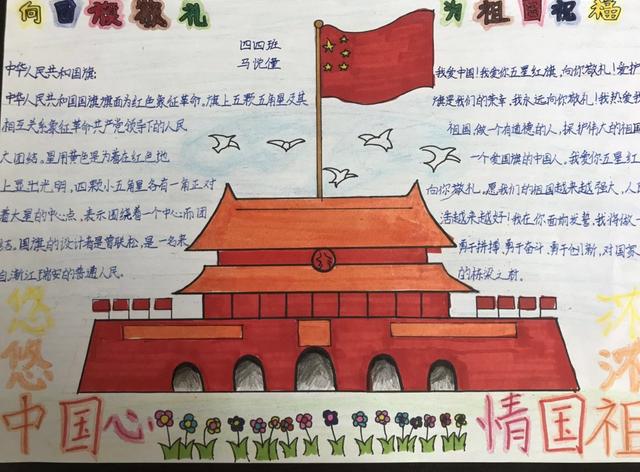 向国旗敬礼
为祖国祝福
四四班
马悦僮
中华人民共和国国旗:
中华人民共和国国旗旗面为红色象征革命。旗上五颗五角星及其
相互关系象征革命共产党领导下的人民
大团结,星用黄色是为着在红色地
上显出光明,四颗小五角星各有一角正对
着大星的中心点,表示围绕着一个中心而团
结。国旗的设计者是曾联松,是一名来
自浙江瑞安的普通人民。
我爱中国!我爱你五星红旗,向你敬礼!爱护
旗是我们的荣幸,我永远向你敬礼!我热爱我
祖国,做一个有道德的人,保护伟大的祖国
一个爱国旗的中国人,我爱你五星红
向你敬礼,愿我们的祖国越来越强大,人
活越来越好!我在你面前发誓,我将做一
勇于拼搏、勇于奋斗、勇于创新,对国家
的栋梁之材。
悠悠
中国心
浓浓
情国祖